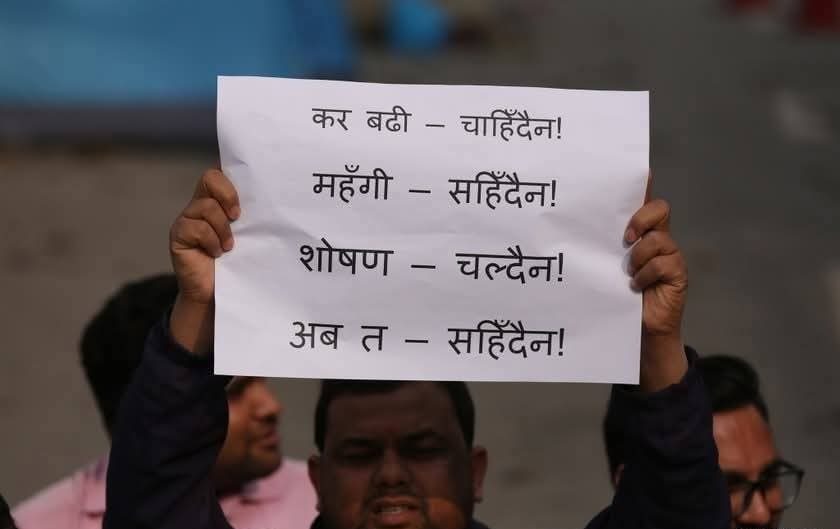 कर बढी – चाहिँदैन!
महँगी – सहिँदैन!
शोषण – चल्दैन!
अब त – सहिँदैन!